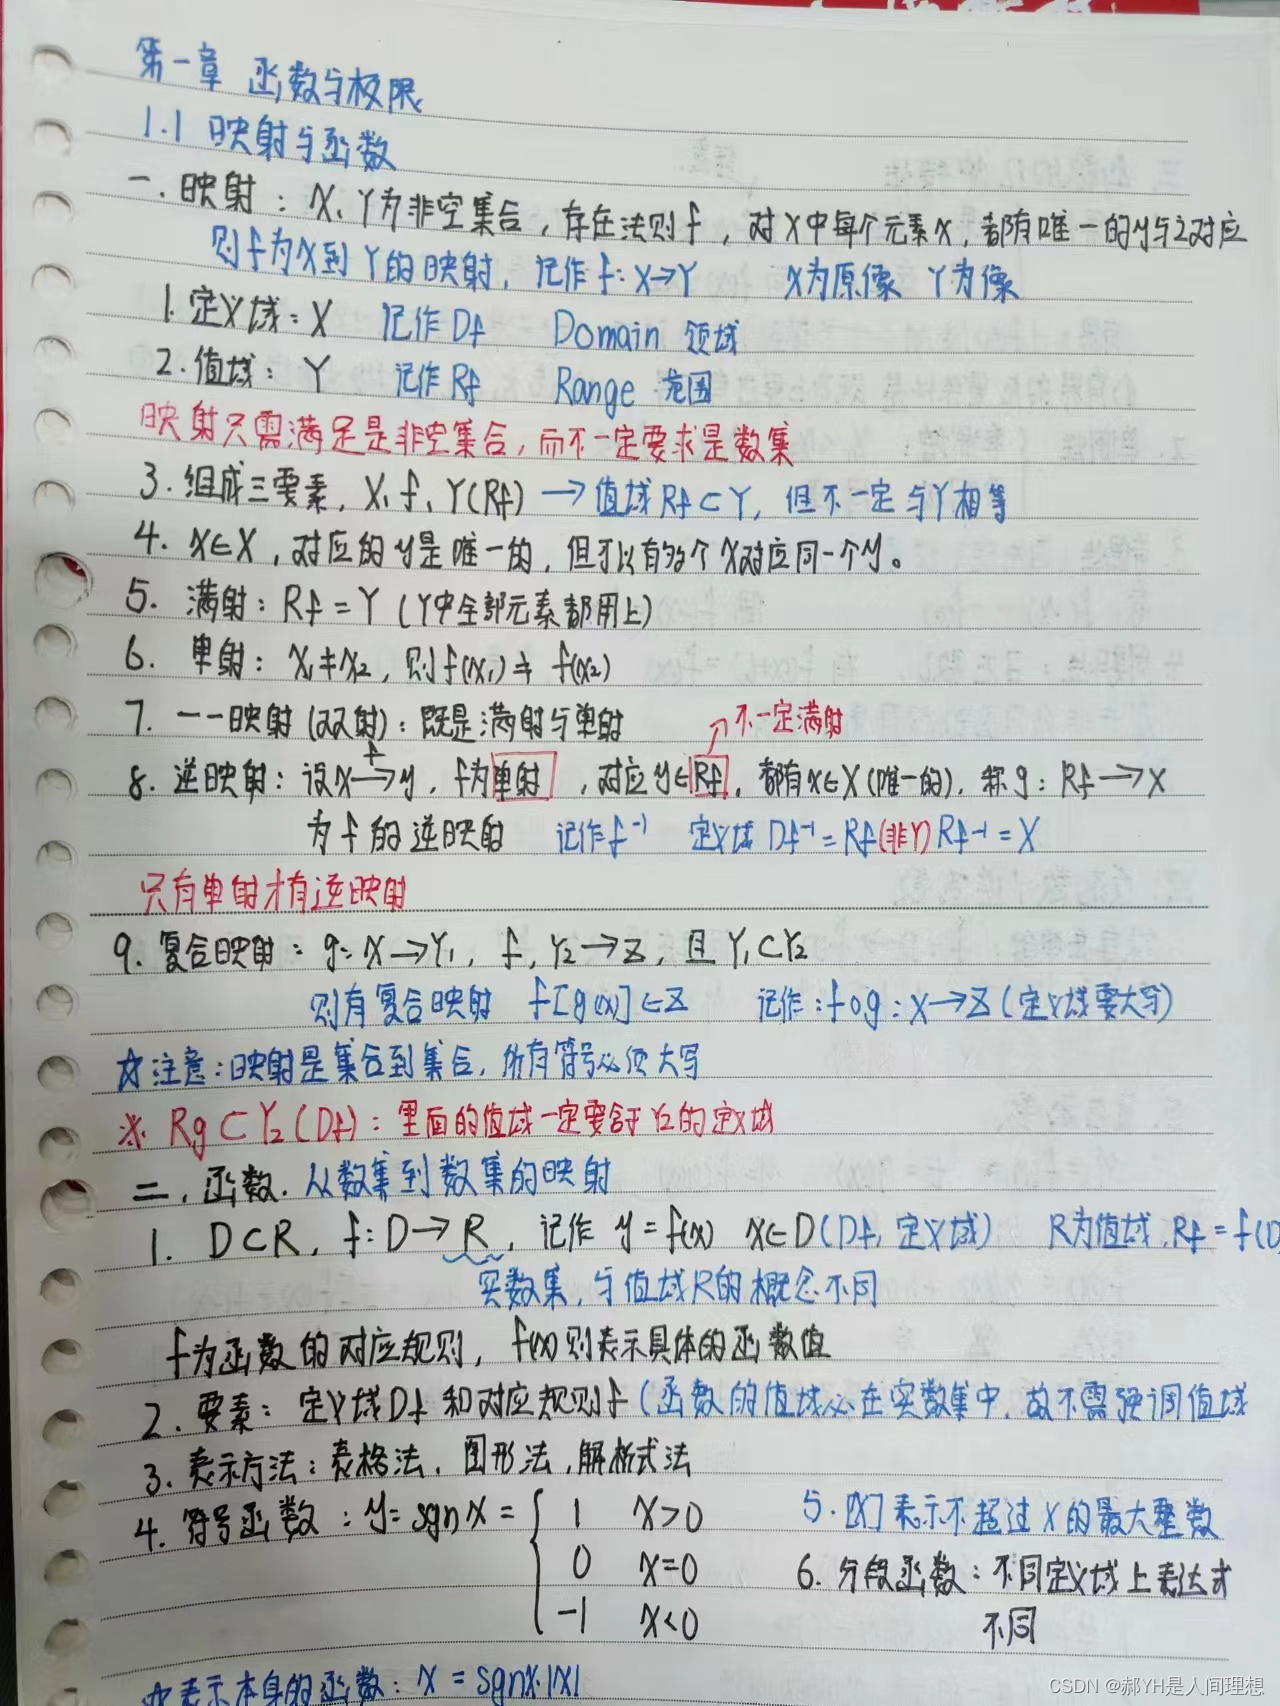 第一章 函数与极限
1.1 映射与函数
一.映射：X、Y为非空集合，存在法则f，对X中每个元素x，都有唯一的y与之对应
则f为X到Y的映射，记作f：X→Y X为原像 Y为像
1.定义域：X 记作Df Domain 领域
2.值域：Y 记作Rf Range 范围
映射只需满足是非空集合，而不一定要求是数集
3.组成三要素，X、f、Y(Rf) →值域Rf⊂Y，但不一定与Y相等
4. x∈X，对应的y是唯一的，但可以有多个x对应同一个y。
5. 满射：Rf=Y（Y中全部元素都用上）
6. 单射：x₁≠x₂，则f(x₁)≠f(x₂)
7. 一一映射(双射)：既是满射与单射 不一定满射
8. 逆映射：设x→y，f为单射，对应y∈Rf，都有x∈X(唯一的)，称g：Rf→X
f
为f的逆映射 记作f⁻¹ 定义域Df⁻¹=Rf(非Y) Rf⁻¹=X
只有单射才有逆映射
9. 复合映射：g：X→Y₁，f，Y₂→Z，且Y₁⊂Y₂
则有复合映射 f[g(x)]∈Z 记作：f∘g：X→Z(定义域要大写)
☆注意：映射是集合到集合，所有符号必须大写
※ Rg⊂Y₂(Df)：里面的值域一定要含于Y₂的定义域
二.函数.从数集到数集的映射
1. D⊂R，f：D→R，记作 y=f(x) x∈D(Df，定义域) R为值域，Rf=f(D
实数集，与值域R的概念不同
f为函数的对应规则，f(x)则表示具体的函数值
2.要素：定义域Df和对应规则f（函数的值域必在实数集中，故不需强调值域
3.表示方法：表格法，图形法，解析式法
4.符号函数：y=sgnx={ 1 x>0 5.[x]表示不超过x的最大整数
0 x=0 6.分段函数：不同定义域上表达式
-1 x<0 不同
☆表示本身的函数：x=sgnx·|x|
CSDN @郝YH是人间理想